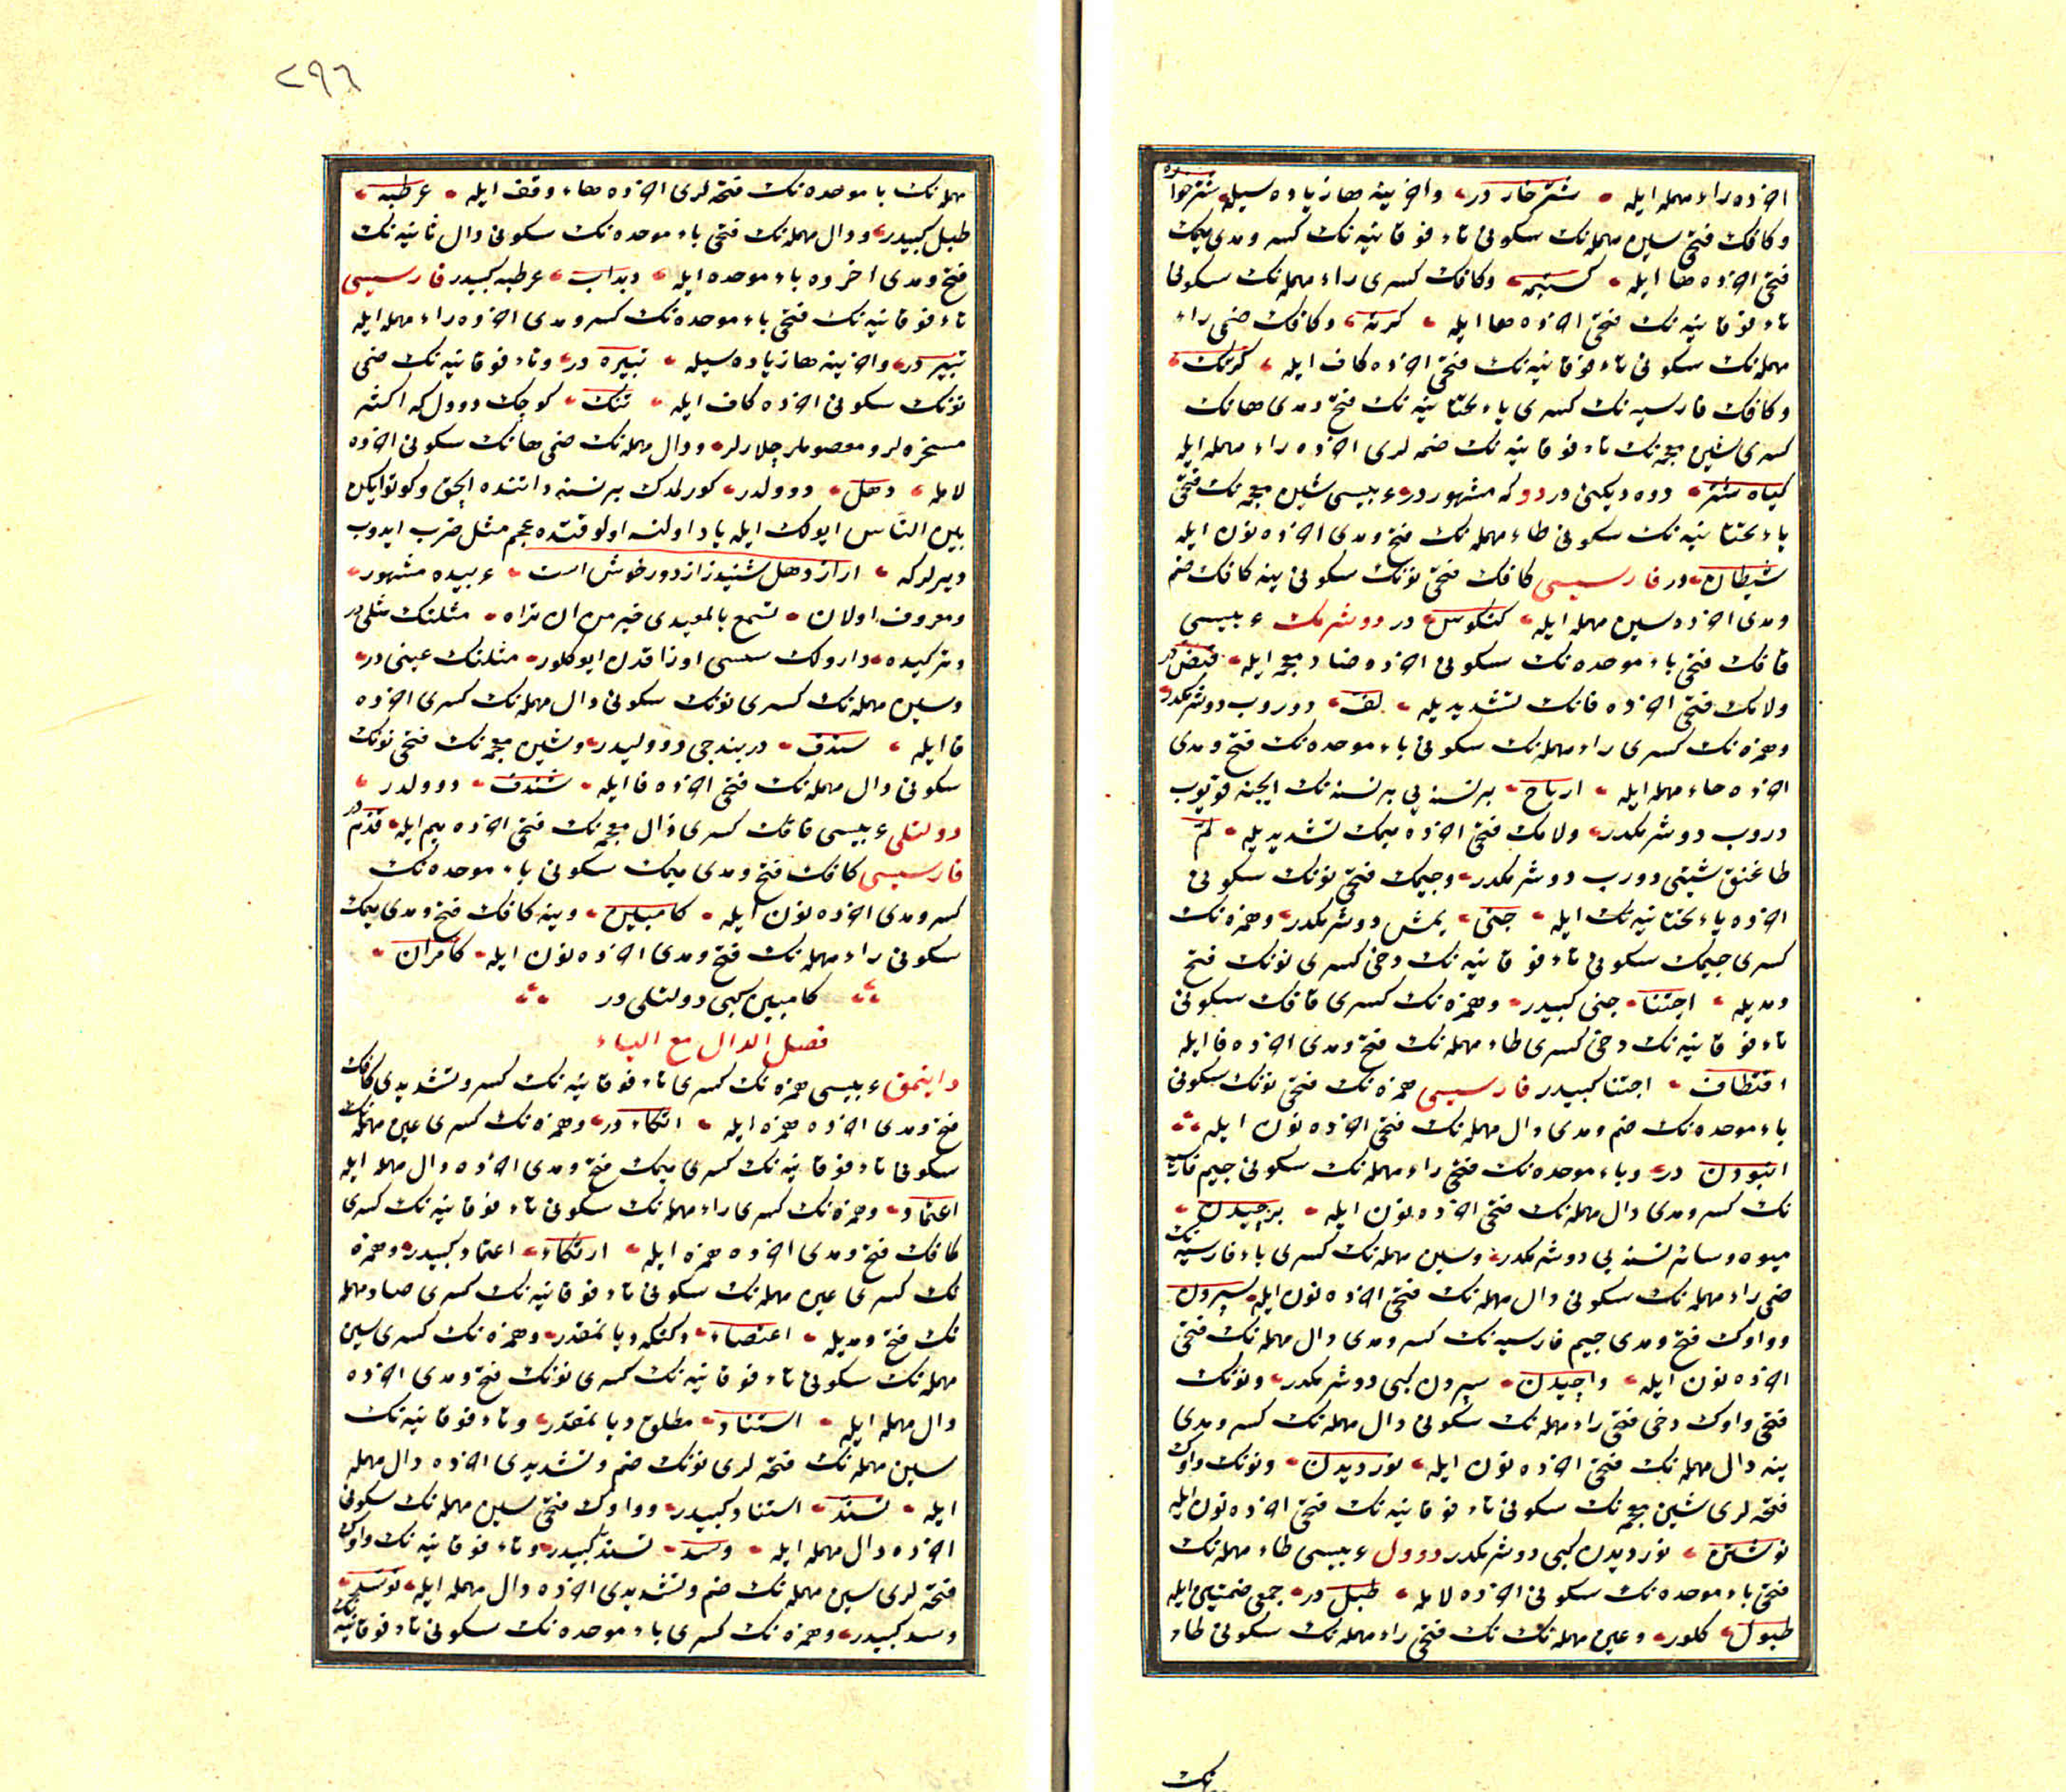 اخرده راء مهمله ایله شتر خار در واخرینه ها زیاده سیله شتر خواره
وكافك فتحی سین مهمله نك سكونی تاء فوقانیه نك كسر ومدی میمك
فتحی اخرده ها ایله كستیمه وكافك كسری راء مهمله نك سكونی
تاء فوقانیه نك فتحی اخرده ها ایله كرته وكافك ضمی راء
مهمله نك سكونی تاء فوقانیه نك فتحی اخرده كاف ایله كرتك
وكافك فارسیه نك كسری یاء تحتانیه نك فتح ومدی هانك
كسری شین معجمه نك تاء فوقانیه نك ضمه لری اخرده راء مهمله ایله
كیاه شتر دوه دیكنی در دو كه مشهور در عربیسی شین معجمه نك فتحی
یاء تحتانیه نك سكونی طاء مهمله نك فتح ومدی اخرده نون ایله
شیطان در فارسیسی كافك فتحی نونك سكونی ینه كافك ضم
ومدی اخرده سین مهمله ایله كنكوس در دوشرمك عربیسی
قافك فتحی باء موحده نك سكونی اخرده ضاد معجمه ایله قبض در
ولامك فتحی اخرده فانك تشدیدیله لف دوروب دوشرمكدر
وهمزه نك كسری راء مهمله نك سكونی باء موحده نك فتح ومدی
اخرده حاء مهمله ایله ارباح بر نسنه یی بر نسنه نك ایچنه قویوب
دروب دوشرمكدر ولامك فتحی اخرده میمك تشدیدیله لم
طاغنق شیئی دورب دوشرمكدر وجیمك فتحی نونك سكونی
اخرده یاء تحتانیه نك ایله جنی یمش دوشرمكدر وهمزه نك
كسری جیمك سكونی تاء فوقانیه نك دخی كسری نونك فتح
ومدیله اجتنا جنی كبیدر وهمزه نك كسری قافك سكونی
تاء فوقانیه نك دخی كسری طاء مهمله نك فتح ومدی اخرده فا ایله
اقتطاف اجتنا كبیدر فارسیسی همزه نك فتحی نونك سكونی
باء موحده نك ضم ومدی دال مهمله نك فتحی اخرده نون ایله
انبودن در وباء موحده نك فتحی راء مهمله نك سكونی جیم فارسیه
نك كسر ومدی دال مهمله نك فتحی اخرده نون ایله برچیدن
میوه وسائر نسنه یی دوشرمكدر وسین مهمله نك كسری باء فارسیه نك
ضمی راء مهمله نك سكونی دال مهمله نك فتحی اخرده نون ایله سپردن
وواوك فتح ومدی جیم فارسیه نك كسر ومدی دال مهمله نك فتحی
اخرده نون ایله واچیدن سپردن كبی دوشرمكدر ونونك
فتحی واوك دخی فتحی راء مهمله نك سكونی دال مهمله نك كسر ومدی
ینه دال مهمله نك فتحی اخرده نون ایله نوردیدن ونونك واوك
فتحه لری شین معجمه نك سكونی تاء فوقانیه نك فتحی اخرده نون ایله
نوشتن نوردیدن كبی دوشرمكدر دوول عربیسی طاء مهمله نك
فتحی باء موحده نك سكونی اخرده لامله طبل در جمعی ضمتین ایله
طبول كلور وعین مهمله نك نك فتحی راء مهمله نك سكونی طاء
نك
٢٩٦
مهمله نك باء موحده نك فتحه لری اخرده هاء وقف ایله عرطبه
طبل كبیدر ودال مهمله نك فتحی باء موحده نك سكونی دال ثانیه نك
فتح ومدی اخرده باء موحده ایله دبداب عرطبه كبیدر فارسیسی
تاء فوقانیه نك فتحی باء موحده نك كسر ومدی اخرده راء مهمله ایله
تبیر در واخرینه ها زیاده سیله تبیره در وتاء فوقانیه نك ضمی
نونك سكونی اخرده كاف ایله تنك كوچك دوول كه اكثر
مسخره لر ومعصوملر چلارلر ودال مهمله نك ضمی هانك سكونی اخرده
لامله دهل دوولدر كورلمدك بر نسنه داننده ایچق وكوتو ایكن
بین الناس ایولك ایله یاد اولنه اولوقتده عجم مثل ضرب ایدوب
دیرلر كه اواز دهل شنیدن از دور خوش است عربیده مشهور
ومعروف اولان تسمع بالمعیدی خیر من ان تراه مثلنك مثلی در
وتركیده داوولك سسی اوزاقدن ایو كلور مثلنك عینی در
وسین مهمله نك كسری نونك سكونی دال مهمله نك كسری اخرده
فا ایله سندف دربندجی دوولیدر وشین معجمه نك فتحی نونك
سكونی دال مهمله نك فتحی اخرده فا ایله شندف دوولدر
دولتلی عربیسی قافك كسری ذال معجمه نك فتحی اخرده میم ایله قذم در
فارسیسی كافك فتح ومدی میمك سكونی باء موحده نك
كسر ومدی اخرده نون ایله كامبین وینه كافك فتح ومدی میمك
سكونی راء مهمله نك فتح ومدی اخرده نون ایله كامران
كامبین كبی دولتلی در
فصل الدال مع الیاء
داینمق عربیسی همزه نك كسری تاء فوقانیه نك كسر وتشدیدی كافك
فتح ومدی اخرده همزه ایله اتكاء در وهمزه نك كسری عین مهمله نك
سكونی تاء فوقانیه نك كسری میمك فتح ومدی اخرده دال مهمله ایله
اعتماد وهمزه نك كسری راء مهمله نك سكونی تاء فوقانیه نك كسری
كافك فتح ومدی اخرده همزه ایله ارتكاء اعتماد كبیدر وهمزه
نك كسری عین مهمله نك سكونی تاء فوقانیه نك كسری صاد مهمله
نك فتح ومدیله اعتصاء دكنكه دیانمقدر وهمزه نك كسری سین
مهمله نك سكونی تاء فوقانیه نك كسری نونك فتح ومدی اخرده
دال مهمله ایله استناد مطلق دیانمقدر وتاء فوقانیه نك
سین مهمله نك فتحه لری نونك ضم وتشدیدی اخرده دال مهمله
ایله تسند استناد كبیدر وواوك فتحی سین مهمله نك سكونی
اخرده دال مهمله ایله وسد تسند كبیدر وتاء فوقانیه نك واوك
فتحه لری سین مهمله نك ضم وتشدیدی اخرده دال مهمله ایله توسد
وسد كبیدر وهمزه نك كسری باء موحده نك سكونی تاء فوقانیه نك